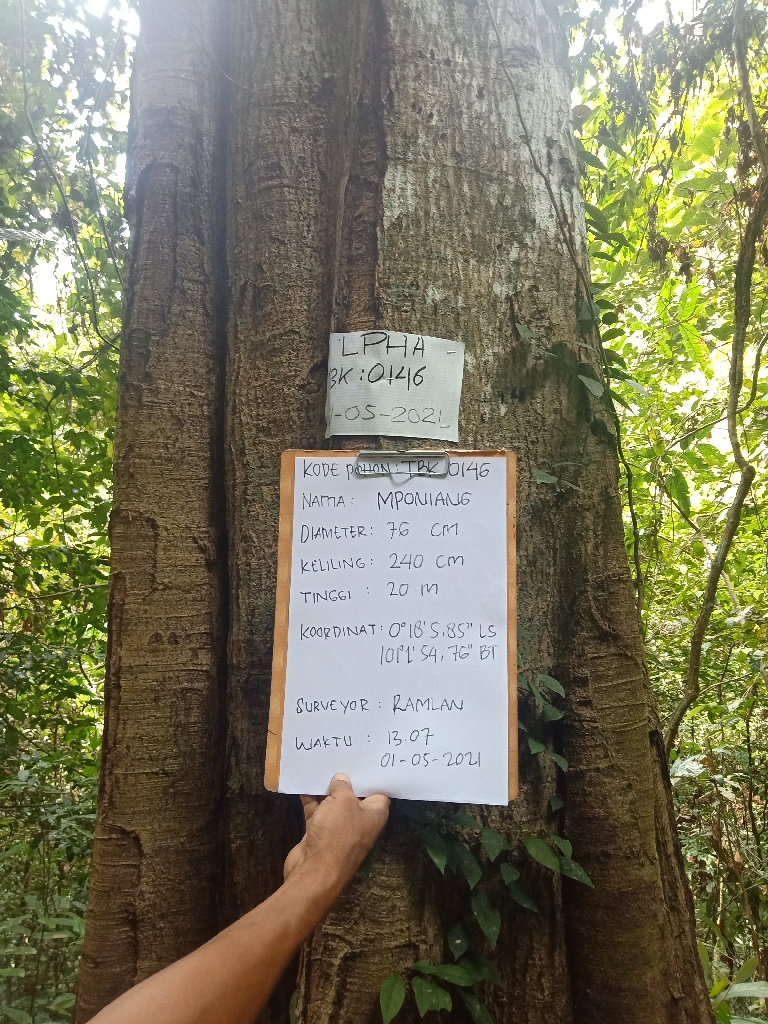 LPHA
BK : 0146
1-05-2021
KODE POHON : TBK 0146
NAMA : MPONIANG
DIAMETER : 76 CM
KELILING : 240 CM
TINGGI : 20 M
KOORDINAT : 0°18'5,85" LS
101°1' 54,76" BT
SURVEYOR : RAMLAN
WAKTU : 13.07
01-05-2021